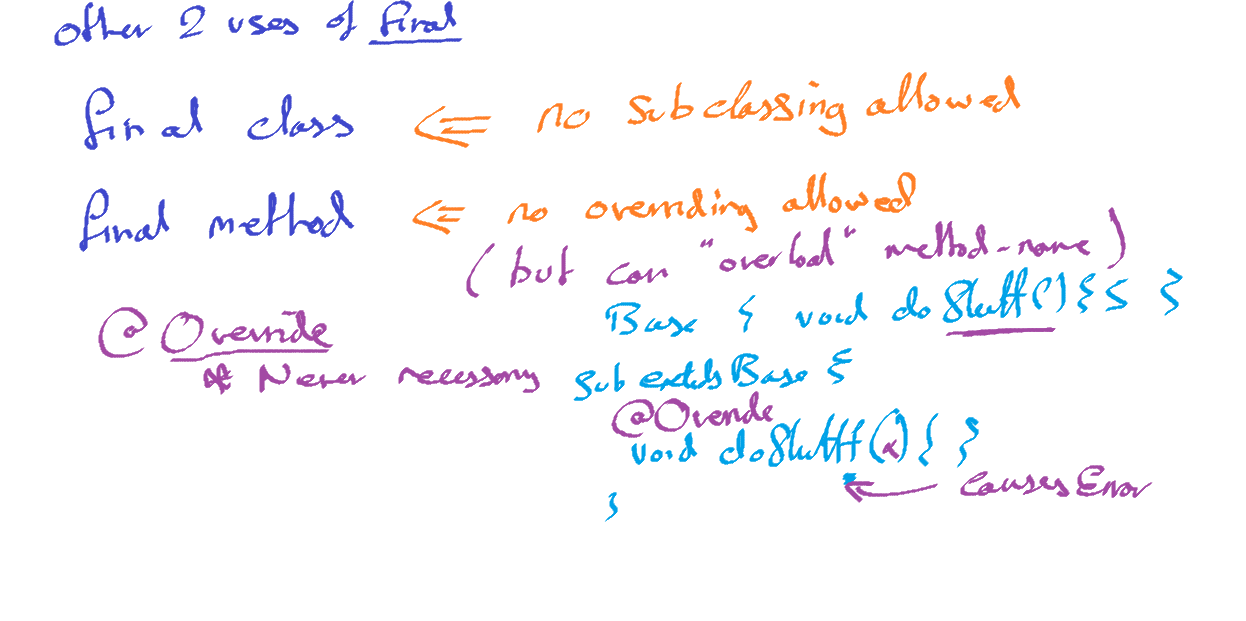 other 2 uses of final
final class <= no subclassing allowed
final method <= no overriding allowed
(but can "overload" method-name)
Base { void doStuff() { } }
@Override
* Never necessary
Sub extends Base {
@Override
void doStuff(x) { }
<- causes Error
}